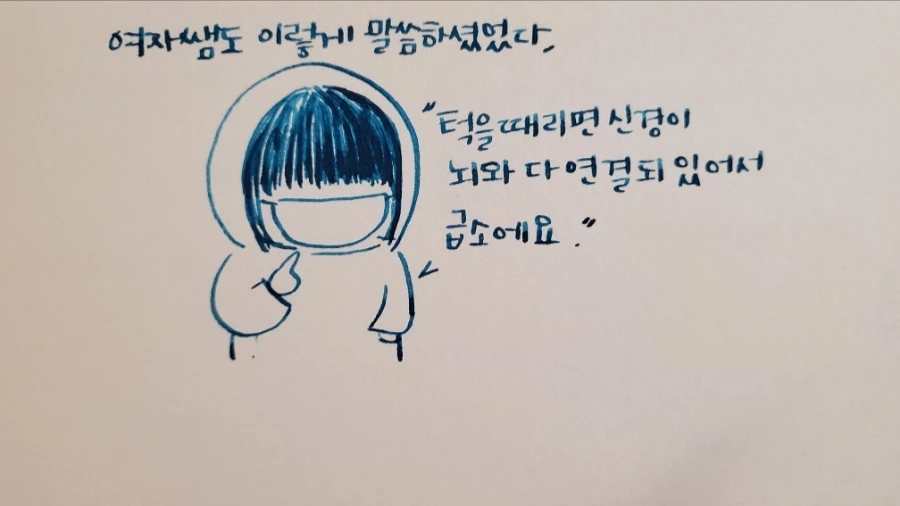 여자쌤도 이렇게 말씀하셨었다.
"턱을 때리면 신경이
뇌와 다 연결되 있어서
급소에요."